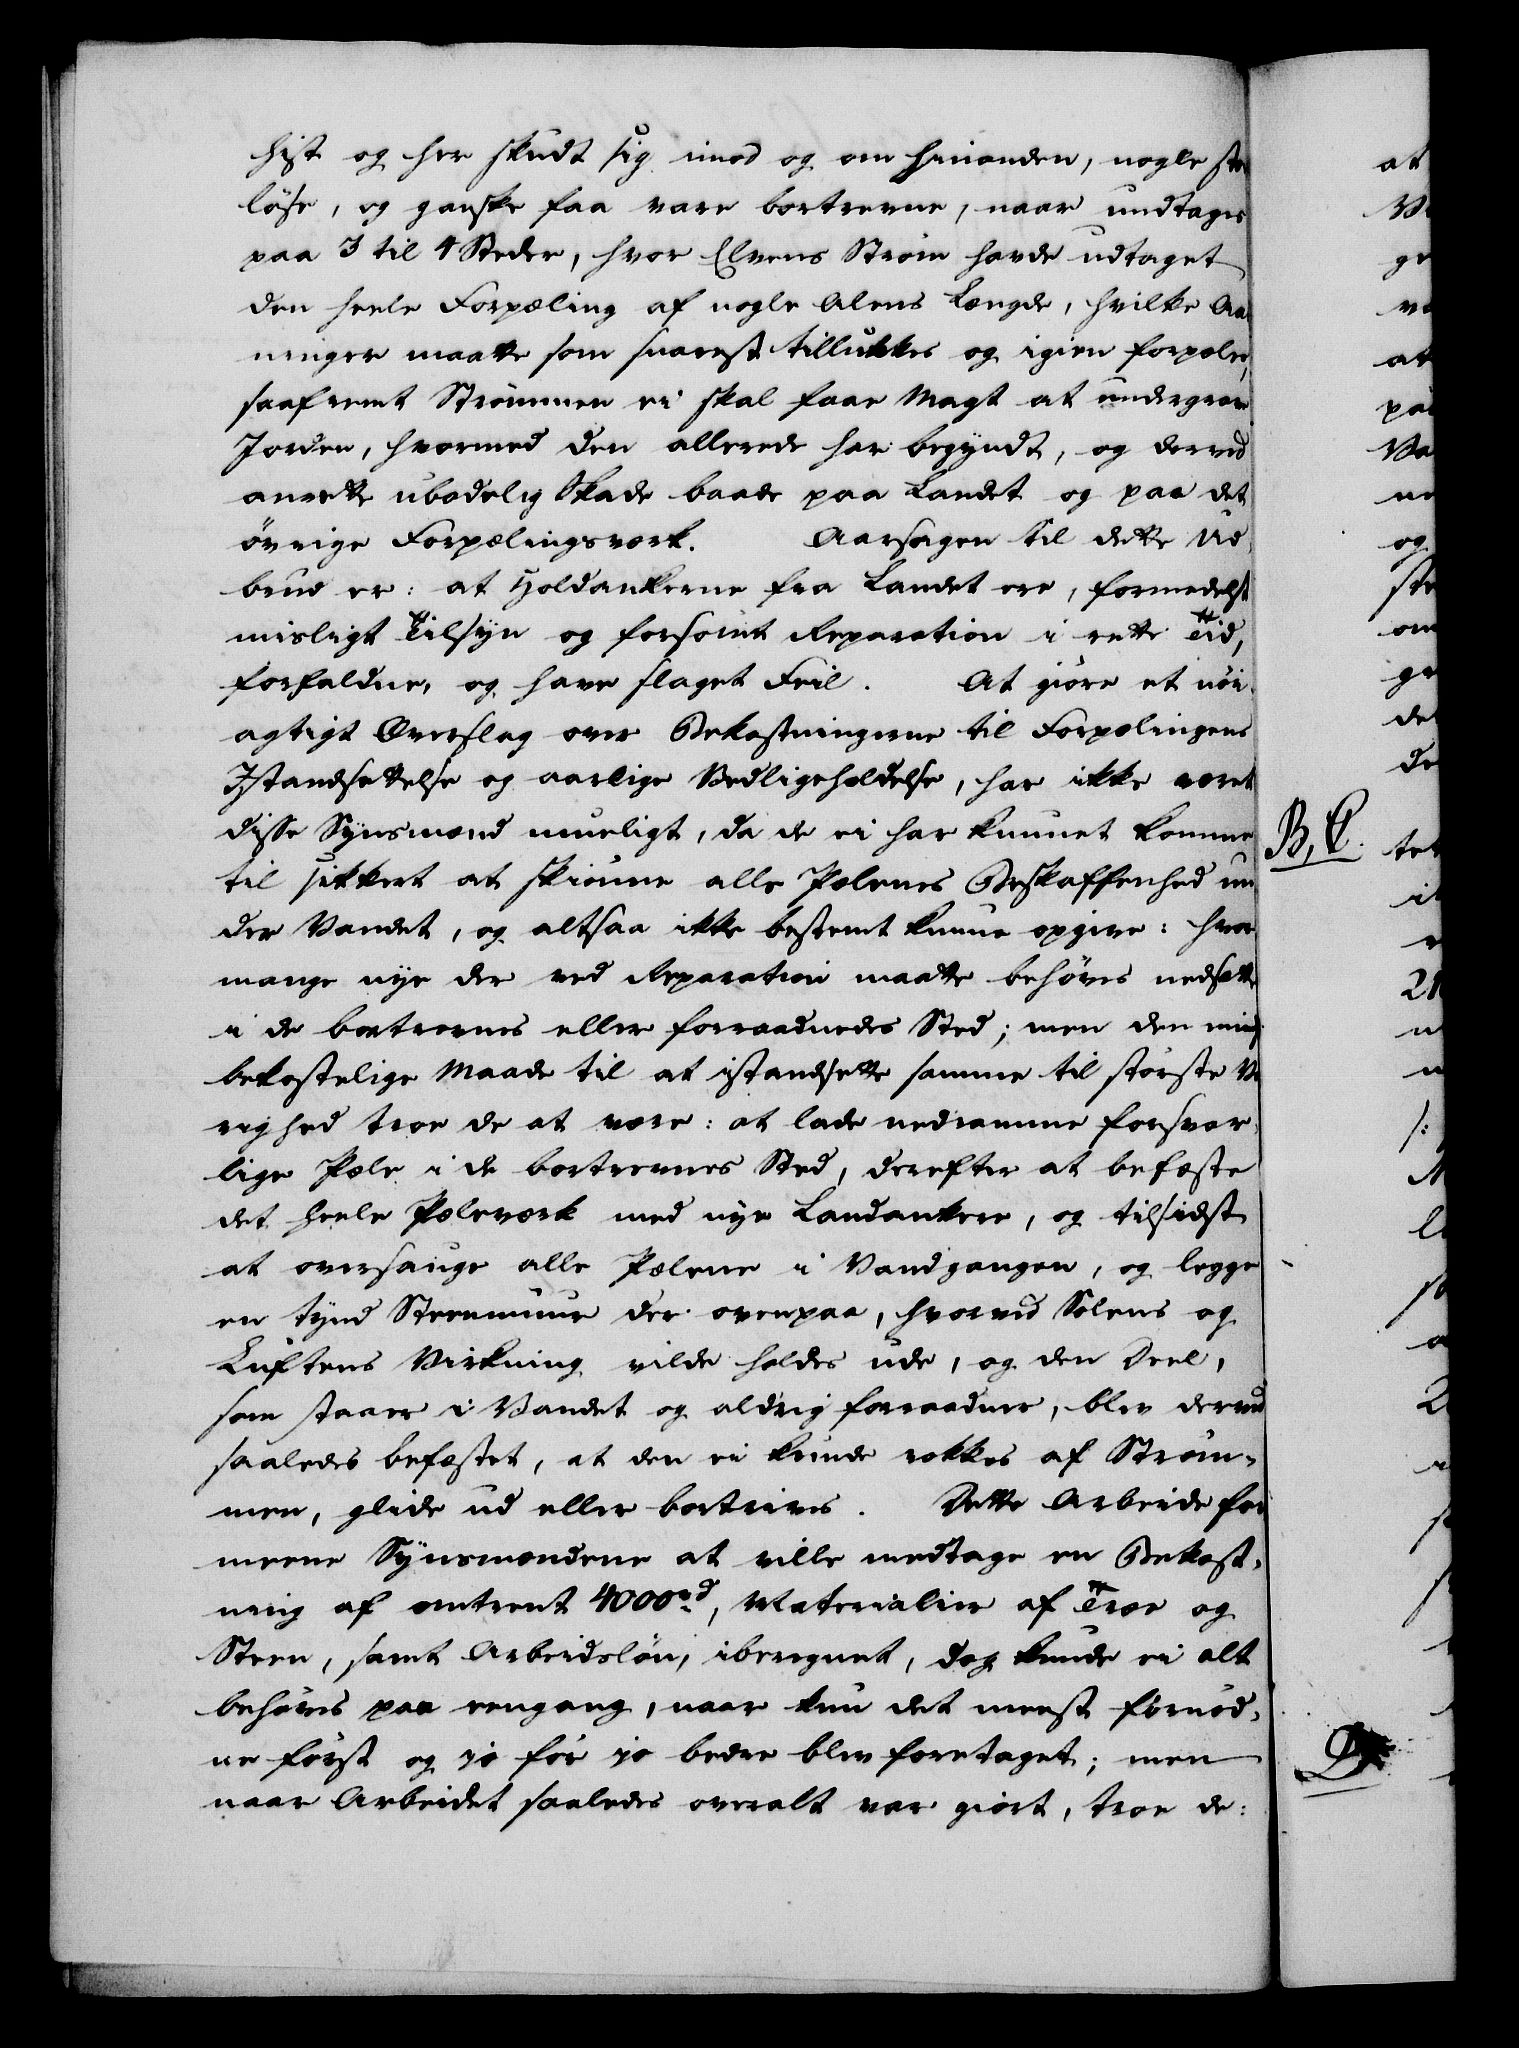 hist og her skudt sig imod og om hinanden, nogle
løse, og ganske faa vare bortrevne, naar undtages
paa 3 til 4 Steder, hvor Elvens Strøm havde udtaget
den heele Forpæling af nogle Alens Længde, hvilke Aa
ninger maatte som snarest tillukkes og igien forpæles,
saafremt Strømmen ei skal faae Magt at undergrave
Jorden, hvormed den allerede har begyndt, og derved
anrette ubodelig Skade baade paa Landet og paa det
øvrige Forpælingsværk. Aarsagen til dette Ud-
brud er: at Holdankerne fra Landet ere, formedelst
misligt Tilsyn og forsømt Reparation i rette Tid,
forfaldne, og have slaget Feil. At giøre et nøi-
agtigt Overslag over Bekostningerne til Forpælingens
Istandsættelse og aarlige Vedligeholdelse, har ikke været
disse Synsmænd mueligt, da de ei har kunnet komme
til sikkert at skiønne alle Pælenes Beskaffenhed un
der Vandet, og altsaa ikke bestemt kunne opgive: hvor
mange nye der ved Reparation maatte behøves nedsatte
i de bortrevnes eller forraadnedes Sted; men den mind
bekostelige Maade til at istandsette samme til største Va
righed troe de at være: at lade nedramme forsvar-
lige Pæle i de bortrevnes Sted, derefter at befæste
det heele Pæleværk med nye Landankere, og tilsidst
at oversauge alle Pælene i Vandgangen, og legge
en tynd Steenmuur der ovenpaa, hvorved Solens og
Luftens Virkning vilde holdes ude, og den Deel,
som staaer i Vandet og aldrig forraadner, blev derved
saaledes befæstet, at den ei kunde rokkes af Strøm-
men, glide ud eller bortrives. Dette Arbeide for
meene Synsmændene at ville medtage en Bekost-
ning af omtrent 4000rd, Materialier af Træe og
Steen, samt Arbeidsløn, iberegnet, dog kunde ei alt
behøves paa eengang, naar kun det meest fornød-
ne først og jo før jo bedre blev foretaget; men
naar Arbeidet saaledes overalt var giort, troe de:
B, C.
D